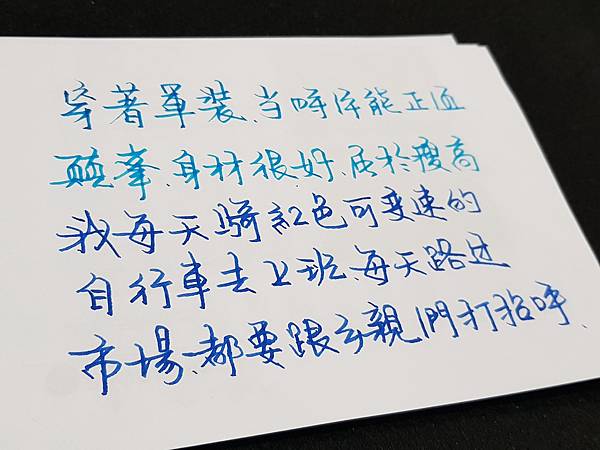 穿著軍裝、当時体能正值
顛峯、身材很好、属於瘦高
我每天騎紅色可变速的
自行車去上班、每天路过
市場、都要跟乡親們打招呼、